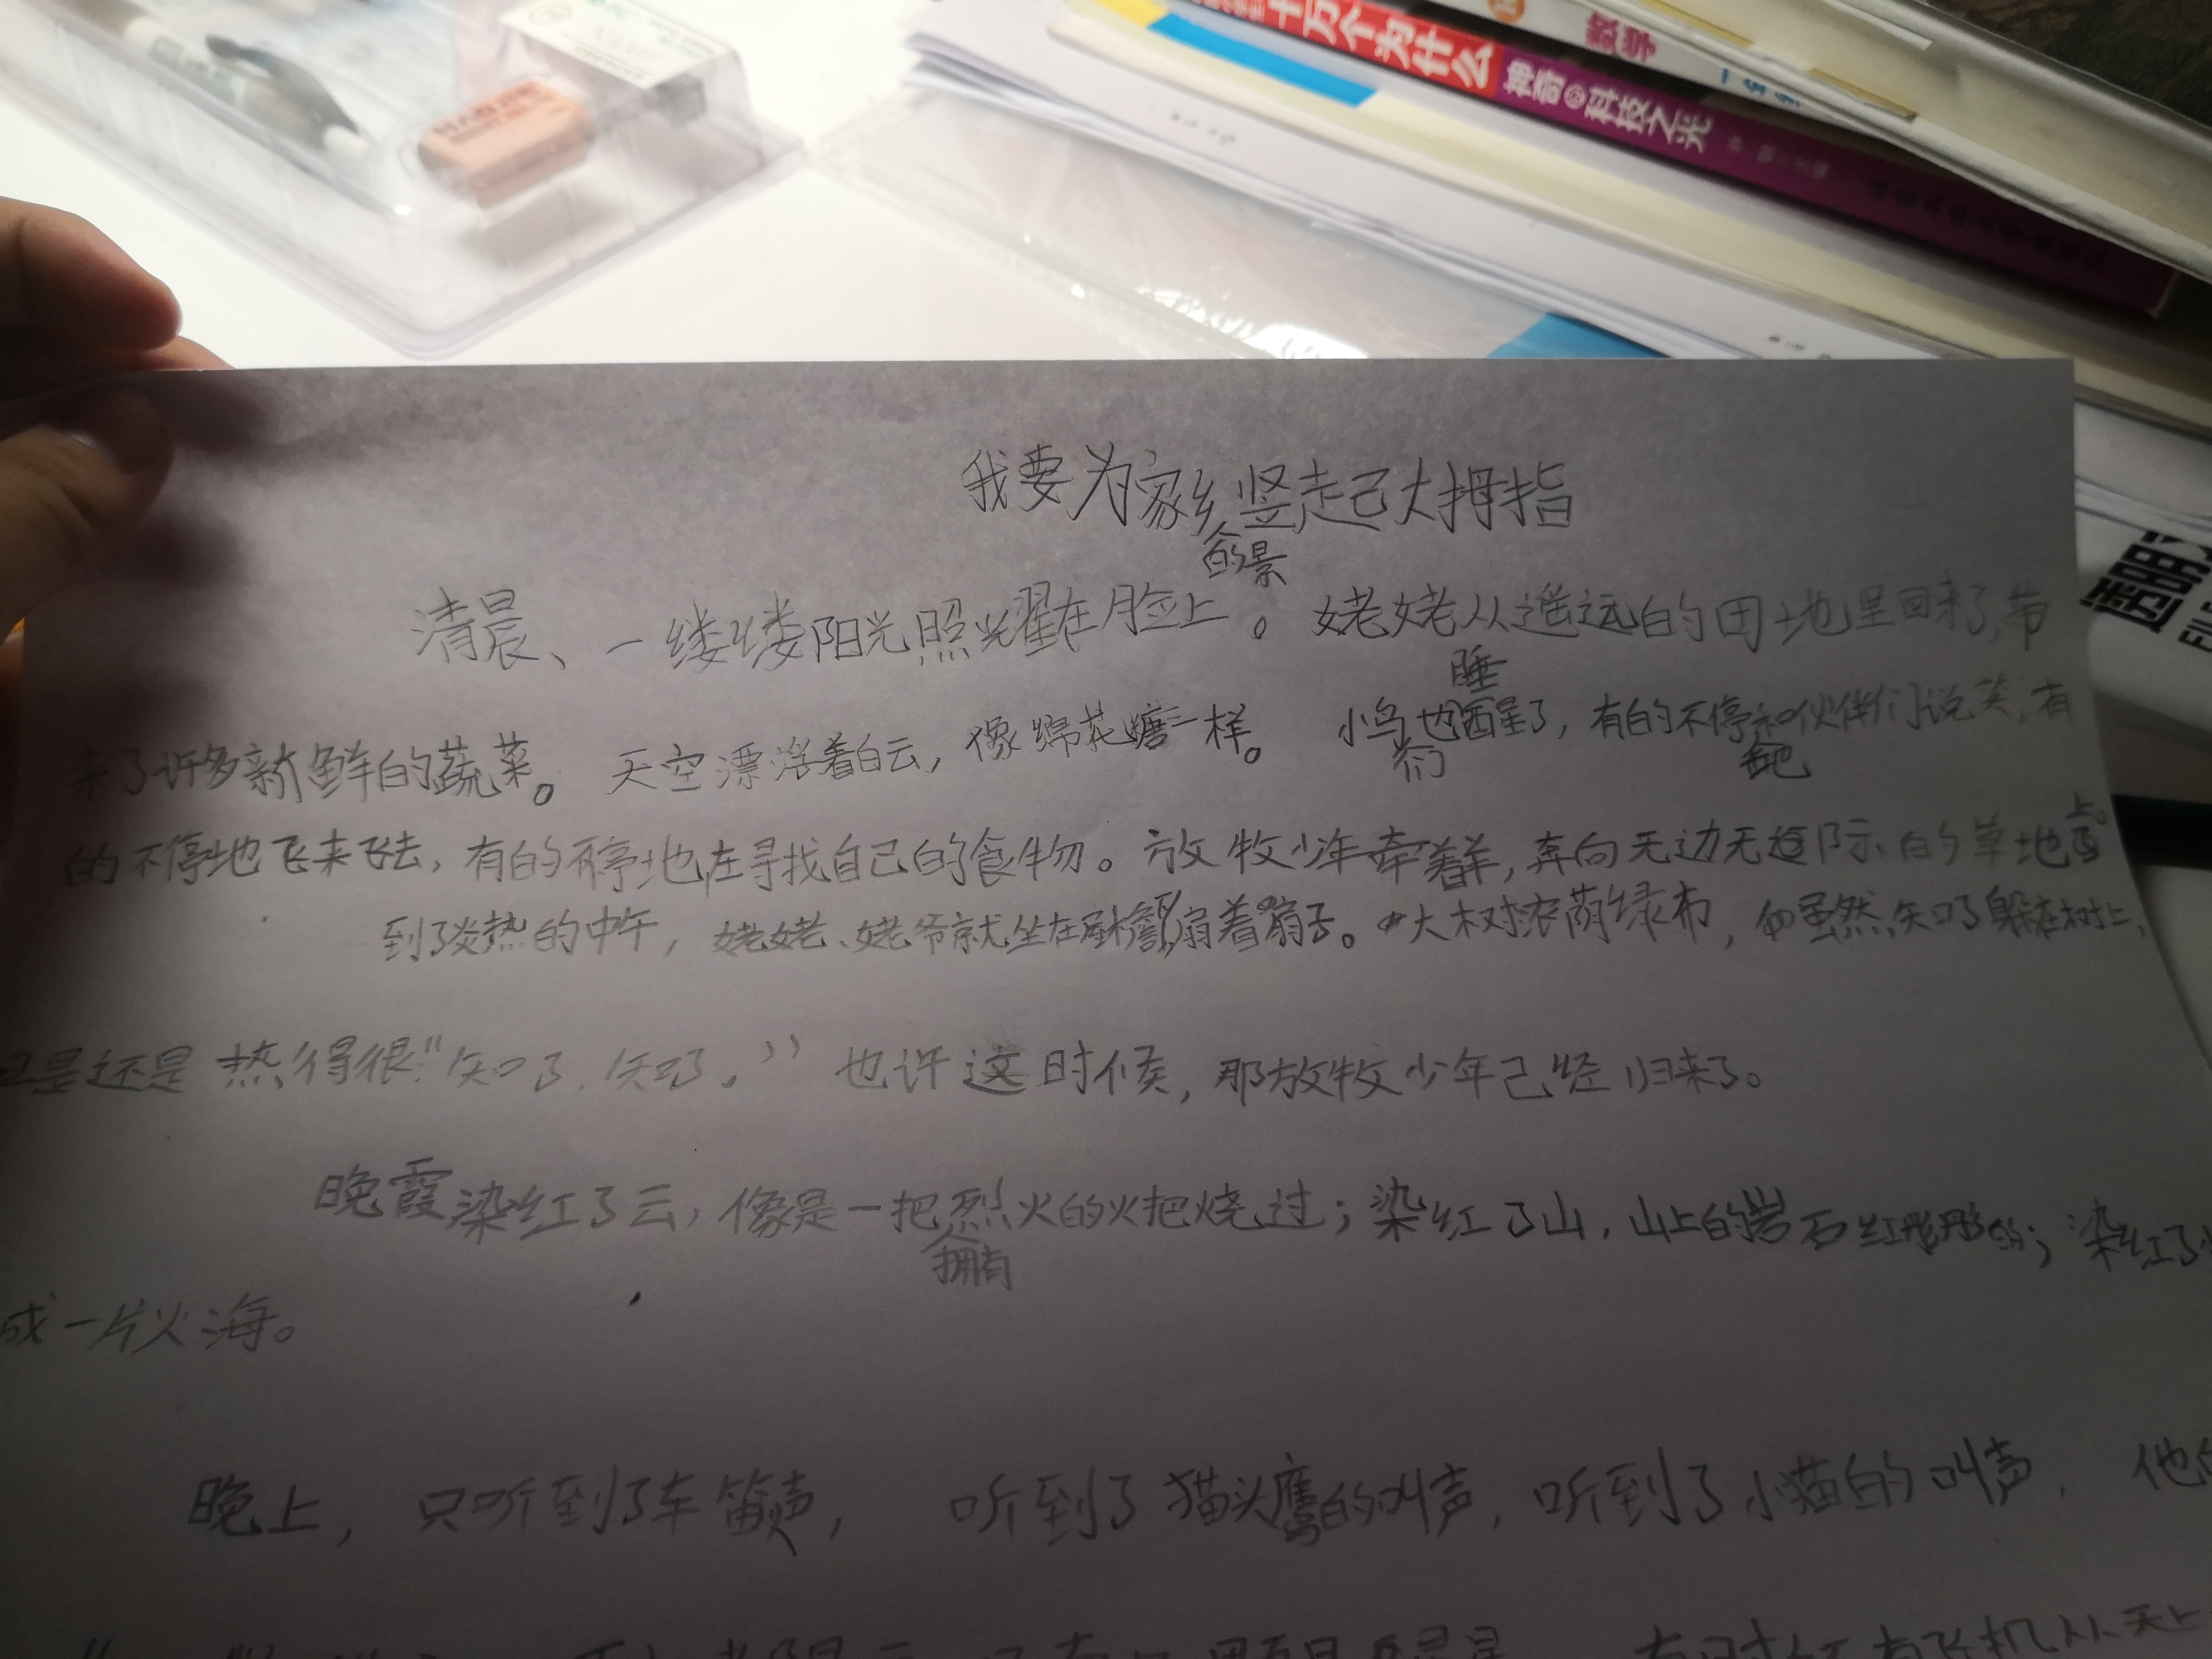 十万个为什么 神奇的科技之光
数学
我要为家乡的景竖起大拇指
清晨、一缕缕阳光照耀在脸上。姥姥从遥远的田地里回来了,带
来了许多新鲜的蔬菜。天空漂浮着白云,像绵花糖一样。小鸟们也睡醒了,有的不停和伙伴们说笑,有
的不停地飞来飞去,有的不停地在寻找自己的食物。放牧少年牵着羊,奔向无边无际的草地上。
到了炎热的中午,姥姥、姥爷就坐在屋檐,扇着扇子。大树浓荫绿布,虽然知了躲在树上,
但是还是热得很“知了,知了。”也许这时候,那放牧少年已经归来了。
晚霞染红了云,像是一把拥有烈火的火把烧过;染红了山,山上的岩石红彤彤的;染红了
成一片火海。
晚上,只听到了车笛声,听到了猫头鹰的叫声,听到了小猫的叫声,他
有飞机从天上